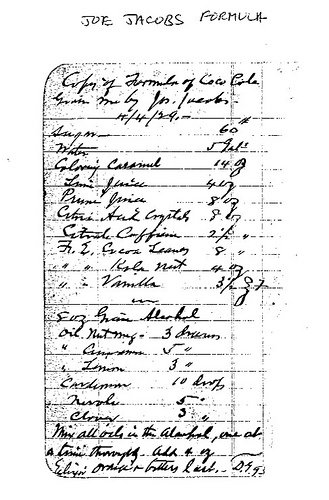 JOE JACOBS FORMULA
Copy of Formula of Coco Cola
Given me by Jos. Jacobs -
4/4/29. -
Sugar 60 #
Water 5 Gals
Coloring Caramel 14 oz
Lime Juice 4 oz
Prune Juice 8 oz
Citric Acid Crystals 8 oz
Citrate Caffeine 2 1/2 "
Fl. E. Cocoa Leaves 8 "
" " Kola Nut 4 oz
" " Vanilla
8 oz Grain Alcohol
Oil Nutmeg - 3 drams
" Cinnamon 5 "
" Lemon 3 "
Cardamon 10 drops
Nerole 5 "
Cloves 3 "
Mix all oils in the Alcohol, one at
a time thoroughly. Add 4 oz
Elixir orange bitters last.